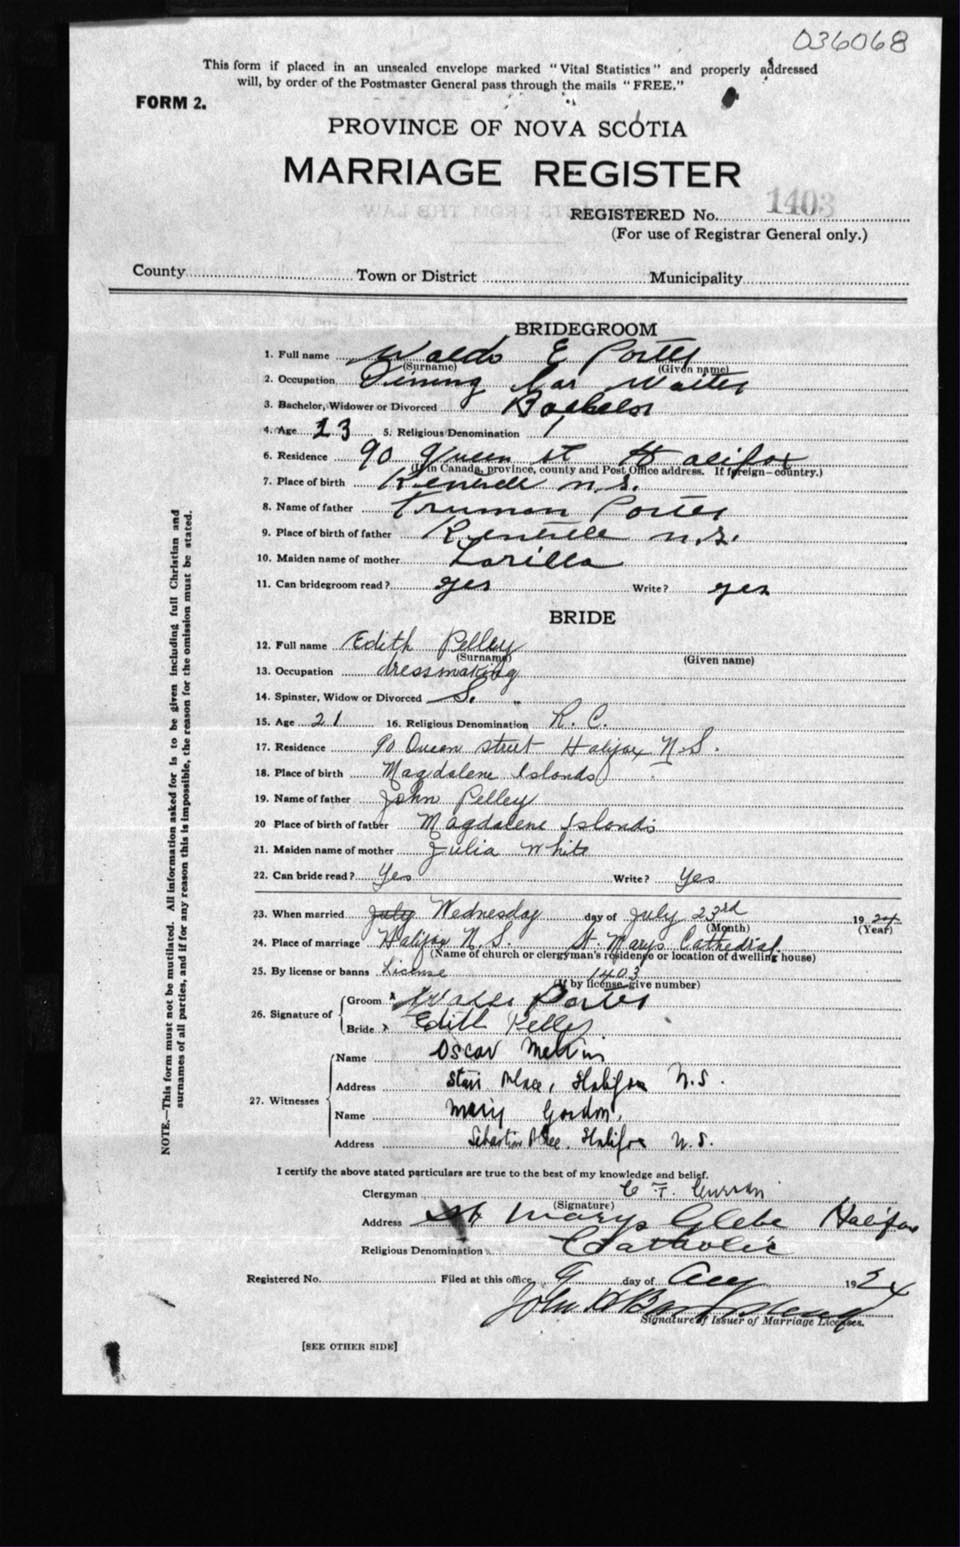 036068
This form if placed in an unsealed envelope marked "Vital Statistics" and properly addressed
will, by order of the Postmaster General pass through the mails "FREE."
FORM 2.
PROVINCE OF NOVA SCOTIA
MARRIAGE REGISTER
REGISTERED No. 1403
(For use of Registrar General only.)
County Town or District Municipality
BRIDEGROOM
1. Full name Waldo E Porter
(Surname) (Given name)
2. Occupation Dining Car Waiter
3. Bachelor, Widower or Divorced Bachelor
4. Age 23 5. Religious Denomination
6. Residence 90 Queen St Halifax
(If in Canada, province, county and Post Office address. If foreign—country.)
7. Place of birth n.s.
8. Name of father Truman Porter
9. Place of birth of father n.s.
10. Maiden name of mother Lorilla
11. Can bridegroom read? yes Write? yes
BRIDE
12. Full name Edith Pelley
(Surname) (Given name)
13. Occupation dressmaking
14. Spinster, Widow or Divorced S.
15. Age 21 16. Religious Denomination R. C.
17. Residence 90 Queen street Halifax N.S.
18. Place of birth Magdalene Islands
19. Name of father John Pelley
20 Place of birth of father Magdalene Islands
21. Maiden name of mother Julia White
22. Can bride read? Yes Write? Yes
23. When married July Wednesday day of July 23rd 1924
(Month) (Year)
24. Place of marriage Halifax N.S. St. Marys Cathedral
(Name of church or clergyman's residence or location of dwelling house)
25. By license or banns License 1403
(If by license give number)
26. Signature of Groom x Waldo Porter
Bride x Edith Pelley
27. Witnesses Name Oscar Melvin
Address Starr Place, Halifax N.S.
Name Mary Gordon,
Address Sebastian Place, Halifax N.S.
I certify the above stated particulars are true to the best of my knowledge and belief.
Clergyman C F. Curran
(Signature)
Address St Marys Glebe Halifax
Religious Denomination Catholic
Registered No. Filed at this office, 9 day of Aug 1924
John
Signature of Issuer of Marriage Licenses.
[SEE OTHER SIDE]
NOTE.—This form must not be mutilated. All information asked for is to be given including full Christian and
surnames of all parties, and if for any reason this is impossible, the reason for the omission must be stated.